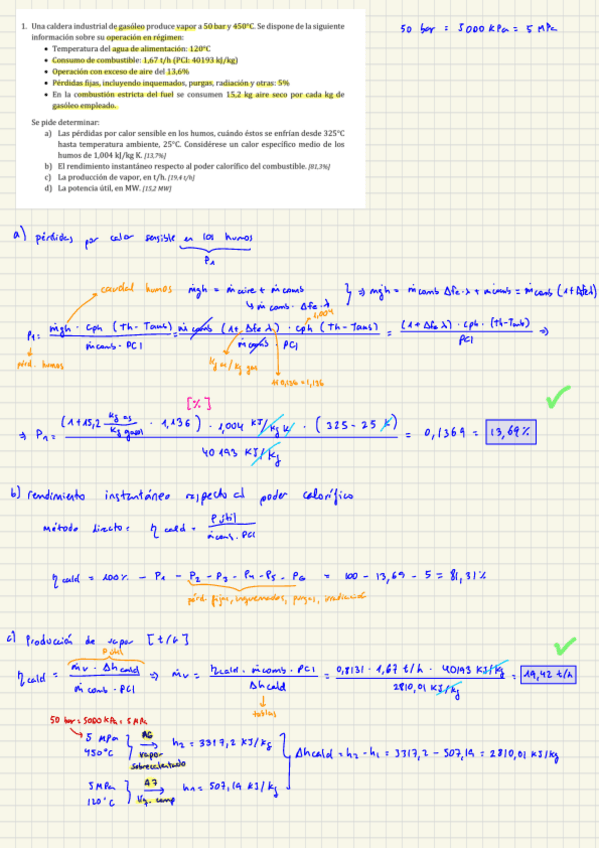 1. Una caldera industrial de gasóleo produce vapor a 50 bar y 450°C. Se dispone de la siguiente
información sobre su operación en régimen:
• Temperatura del agua de alimentación: 120°C
• Consumo de combustible: 1,67 t/h (PCI: 40193 kJ/kg)
• Operación con exceso de aire del 13,6%
• Pérdidas fijas, incluyendo inquemados, purgas, radiación y otras: 5%
• En la combustión estricta del fuel se consumen 15,2 kg aire seco por cada kg de
gasóleo empleado.
Se pide determinar:
a) Las pérdidas por calor sensible en los humos, cuándo éstos se enfrían desde 325°C
hasta temperatura ambiente, 25°C. Considérese un calor específico medio de los
humos de 1,004 kJ/kg K. [13,7%]
b) El rendimiento instantáneo respecto al poder calorífico del combustible. [81,3%]
c) La producción de vapor, en t/h. [19,4 t/h]
d) La potencia útil, en MW. [15,2 MW]
50 bar = 5000 KPa = 5 MPa
a) pérdidas por calor sensible en los humos
P1
caudal humos
ṁgh = ṁ aire + ṁ comb
↳ ṁ comb · Δfe · λ
⇒ ṁgh = ṁ comb Δfe · λ + ṁ comb = ṁ comb (1 + Δfe λ)
P1 = ṁgh · cph (Th - Tamb) / ṁ comb · PCI = ṁ comb (1 + Δfe λ) · cph (Th - Tamb) / ṁ comb PCI = (1 + Δfe λ) · cph · (Th - Tamb) / PCI ⇒
1,004
pérd. humos
kg as/kg gas
1+0,136 = 1,136
[%]
⇒ P1 = (1 + 15,2 kg as/kg gasol · 1,136) · 1,004 KJ/kg K · (325 - 25 K) / 40193 KJ/kg = 0,1369 = 13,69%
b) rendimiento instantáneo respecto al poder calorífico
método directo: η cald = P útil / ṁ comb. PCI
η cald = 100% - P1 - P2 - P3 - P4 - P5 - P6 = 100 - 13,69 - 5 = 81,31%
pérd fijas, inquemados, purgas, radiación
c) Producción de vapor [t/h]
P útil
η cald = ṁv · Δh cald / ṁ comb · PCI ⇒ ṁv = η cald · ṁ comb · PCI / Δh cald = 0,8131 · 1,67 t/h · 40193 KJ/kg / 2810,01 KJ/kg = 19,42 t/h
tablas
50 bar = 5000 KPa = 5 MPa
5 MPa
450°C
A6
vapor
sobrecalentado
h2 = 3317,2 KJ/kg
Δh cald = h2 - h1 = 3317,2 - 507,19 = 2810,01 KJ/kg
5 MPa
120°C
A7
líq. comp
h1 = 507,19 KJ/kg